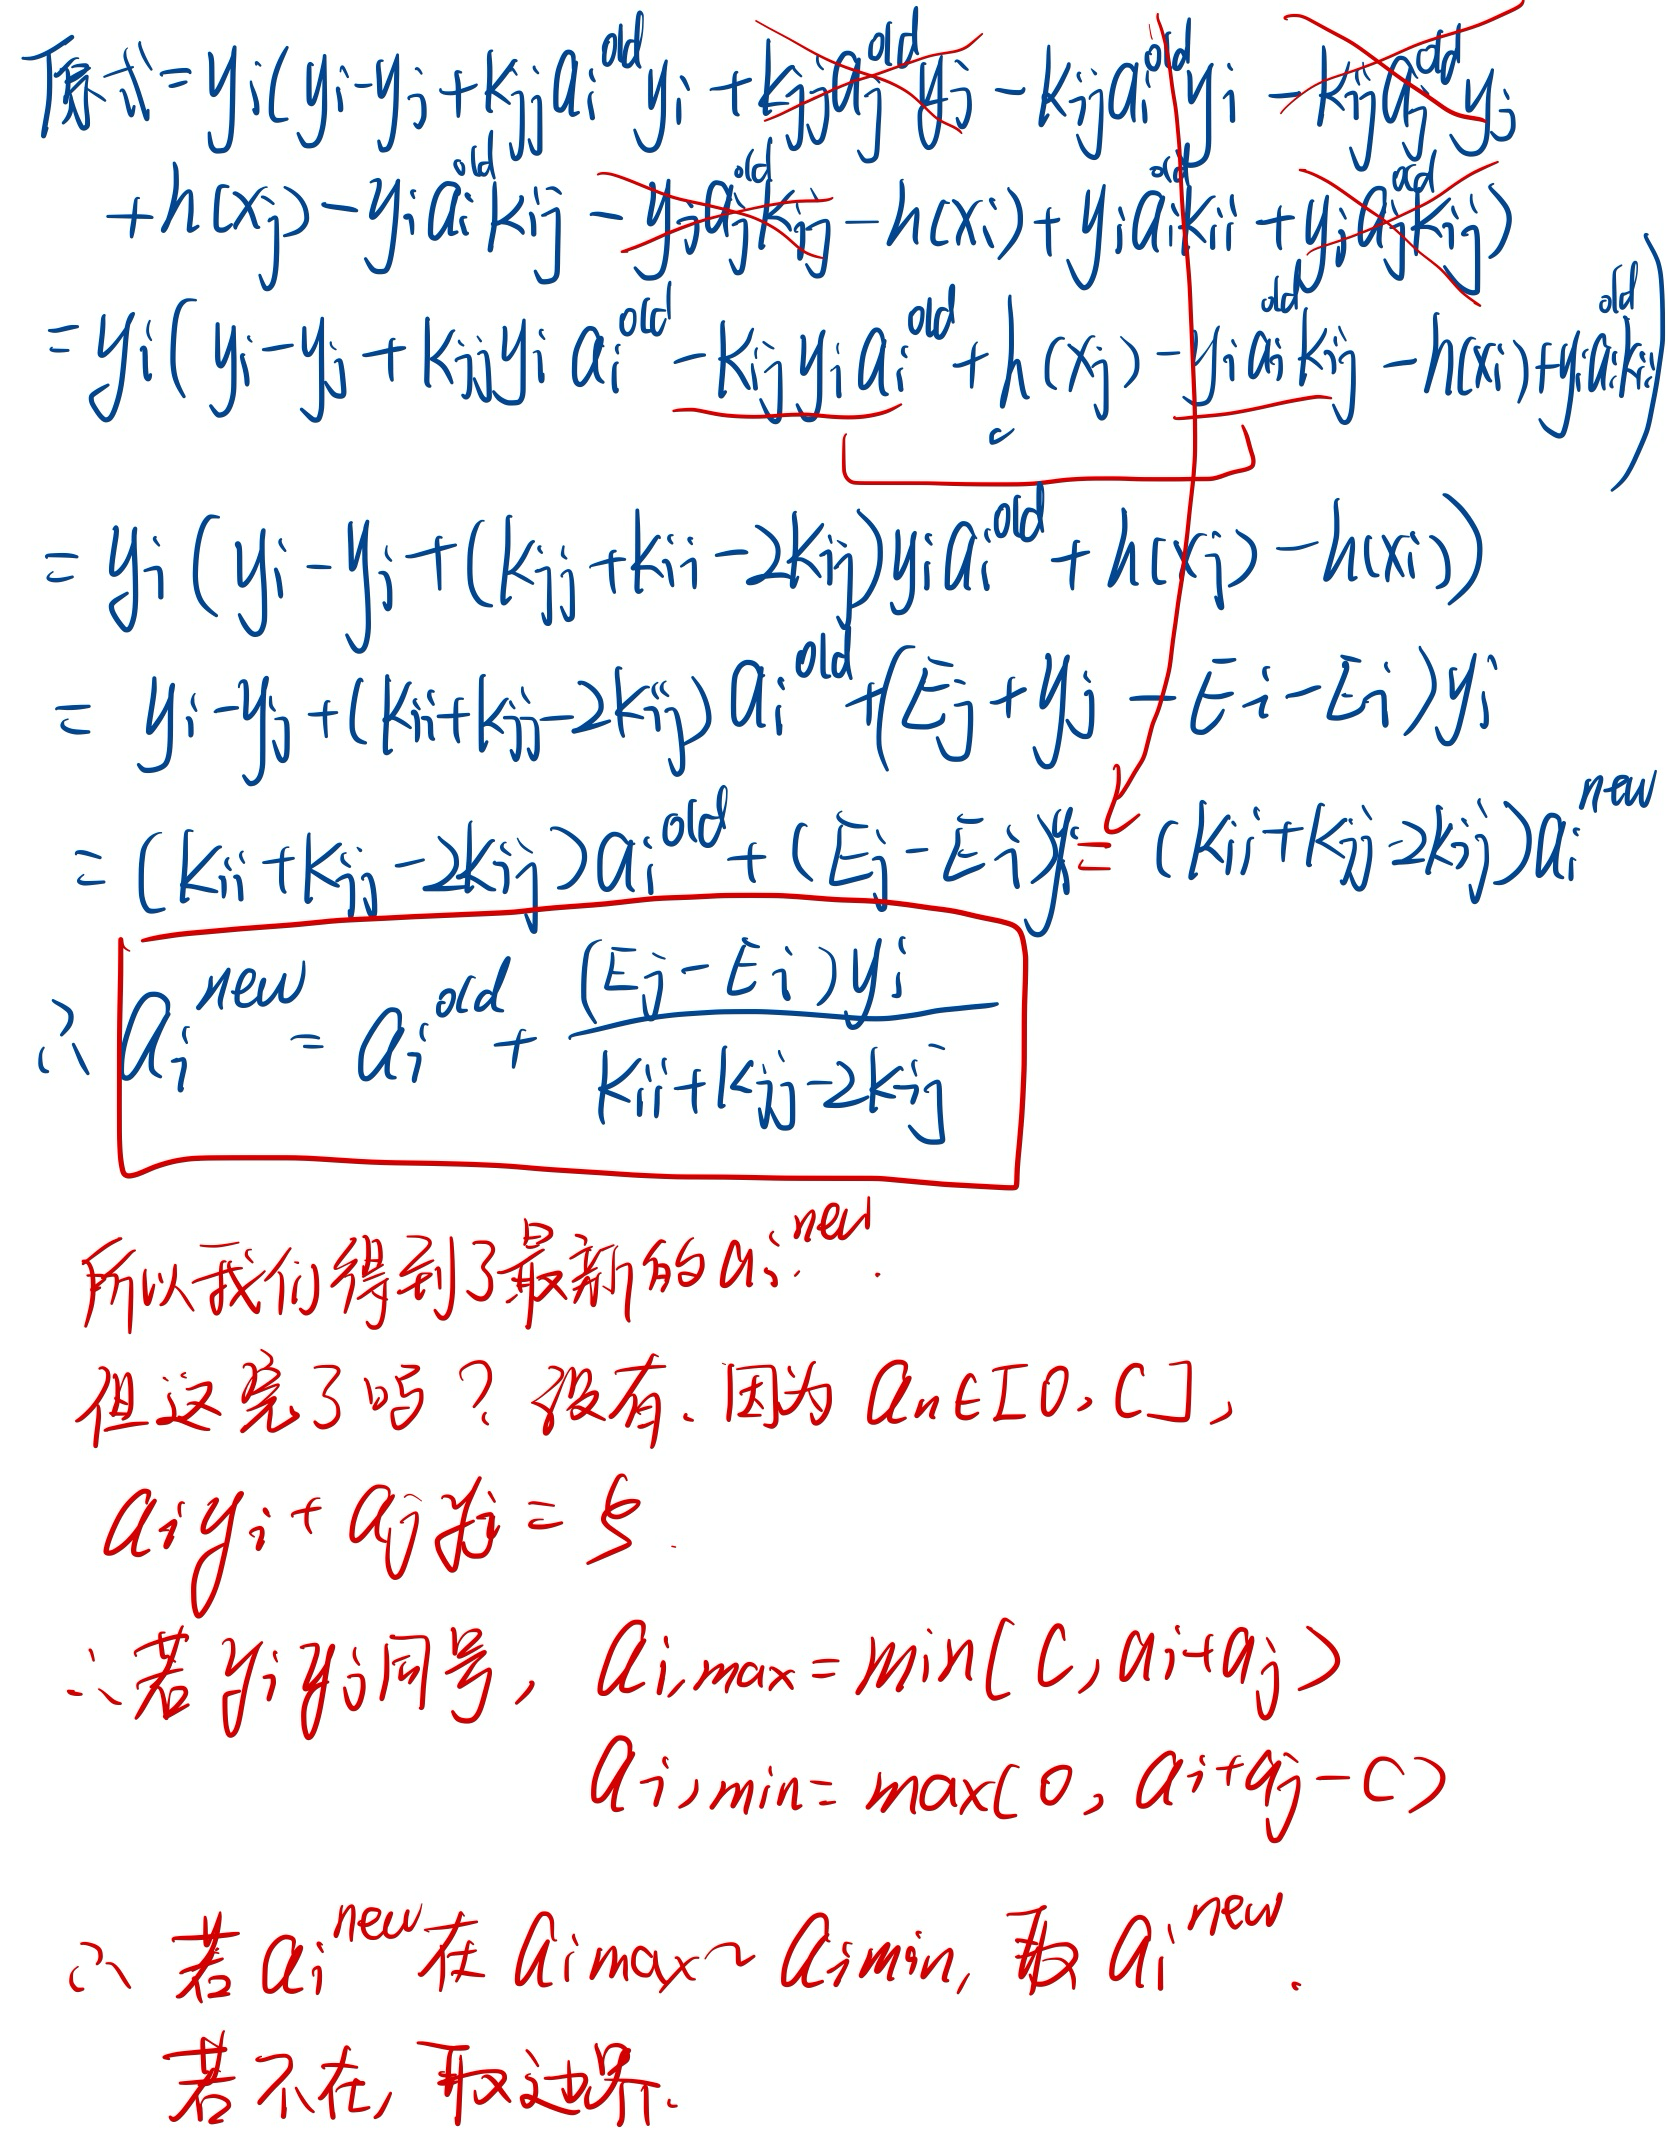 原式=yi(yi-yj+kjjai^old yi+kjjaj^old yj-kijai^old yi-kijaj^old yj
+h(xj)-yiai^old kij-yjaj^old kjj-h(xi)+yiai^old kii+yjaj^old kij)
=yi(yi-yj+kjjyiai^old-kijyiai^old+h(xj)-yiai^old kij-h(xi)+yiai^old kii)
=yi(yi-yj+(kjj+kii-2kij)yiai^old+h(xj)-h(xi))
=yi-yj+(kii+kjj-2kij)ai^old+(Ej+yj-Ei-Ei)yi
=(kii+kjj-2kij)ai^old+(Ej-Ei)yi=(kii+kjj-2kij)ai^new
∴ai^new=ai^old+(Ej-Ei)yi/kii+kjj-2kij
所以我们得到了最新的ai^new.
但这完了吗?没有、因为an∈[0,C],
aiyi+ajyj=ξ.
∴若yiyj同号,ai,max=min(C,ai+aj)
ai,min=max(0,ai+aj-C)
∴若ai^new在aimax~aimin,取ai^new.
若不在,取边界.